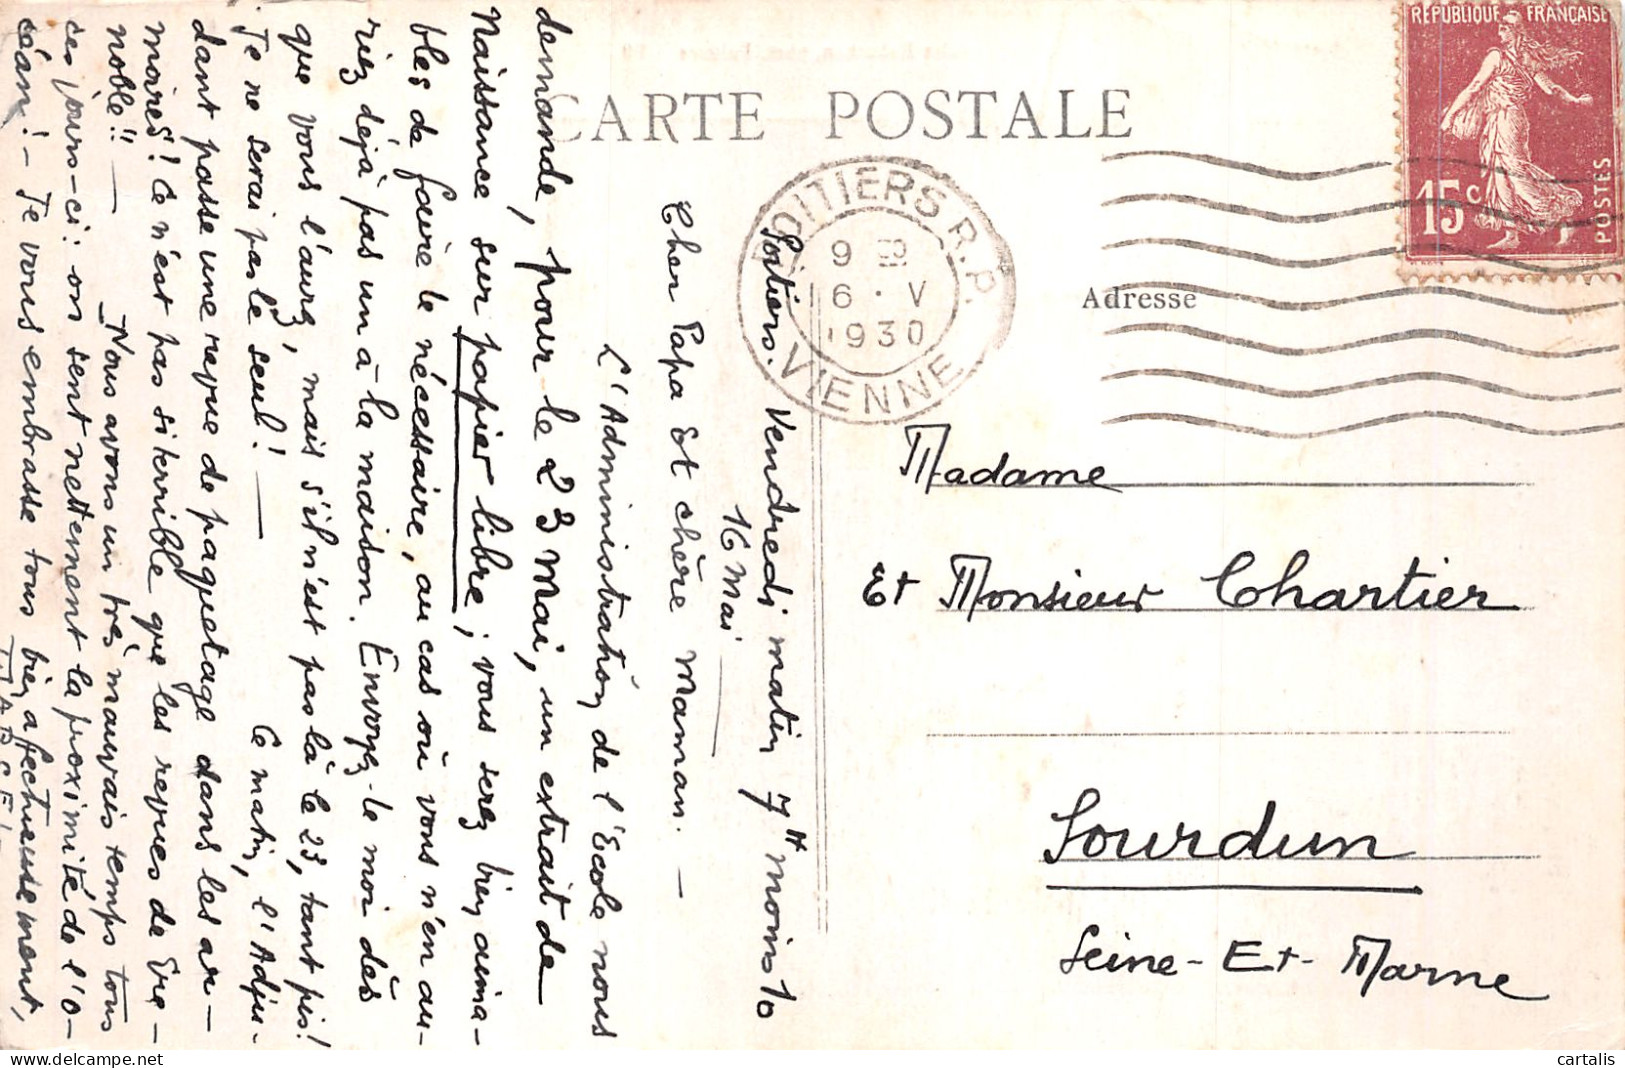 CARTE POSTALE
RÉPUBLIQUE FRANÇAISE
15c
POSTES
POITIERS R.P.
9
16 · V
1930
VIENNE
Adresse
Madame
Et Monsieur Chartier
Sourdun
Seine-Et-Marne
Poitiers. Vendredi matin 7H moins 10
16 Mai
Cher Papa Et chère Maman. —
L'Administration de l'Ecole nous
demande, pour le 23 Mai, un extrait de
Naissance sur papier libre; vous serez bien aima-
bles de faire le nécessaire, au cas où vous n'en au-
riez déjà pas un à la maison. Envoyez-le moi dès
que vous l'aurez, mais s'il n'est pas là le 23, tant pis!
Je ne serai pas le seul! — Ce matin, l'Adju-
dant passe une revue de paquetage dans les ar-
moires! Ce n'est pas si terrible que les revues de Gre-
noble!! — Nous avons un très mauvais temps tous
ces jours-ci: on sent nettement la proximité de l'o-
céan! - Je vous embrasse tous bien affectueusement,
cartalis